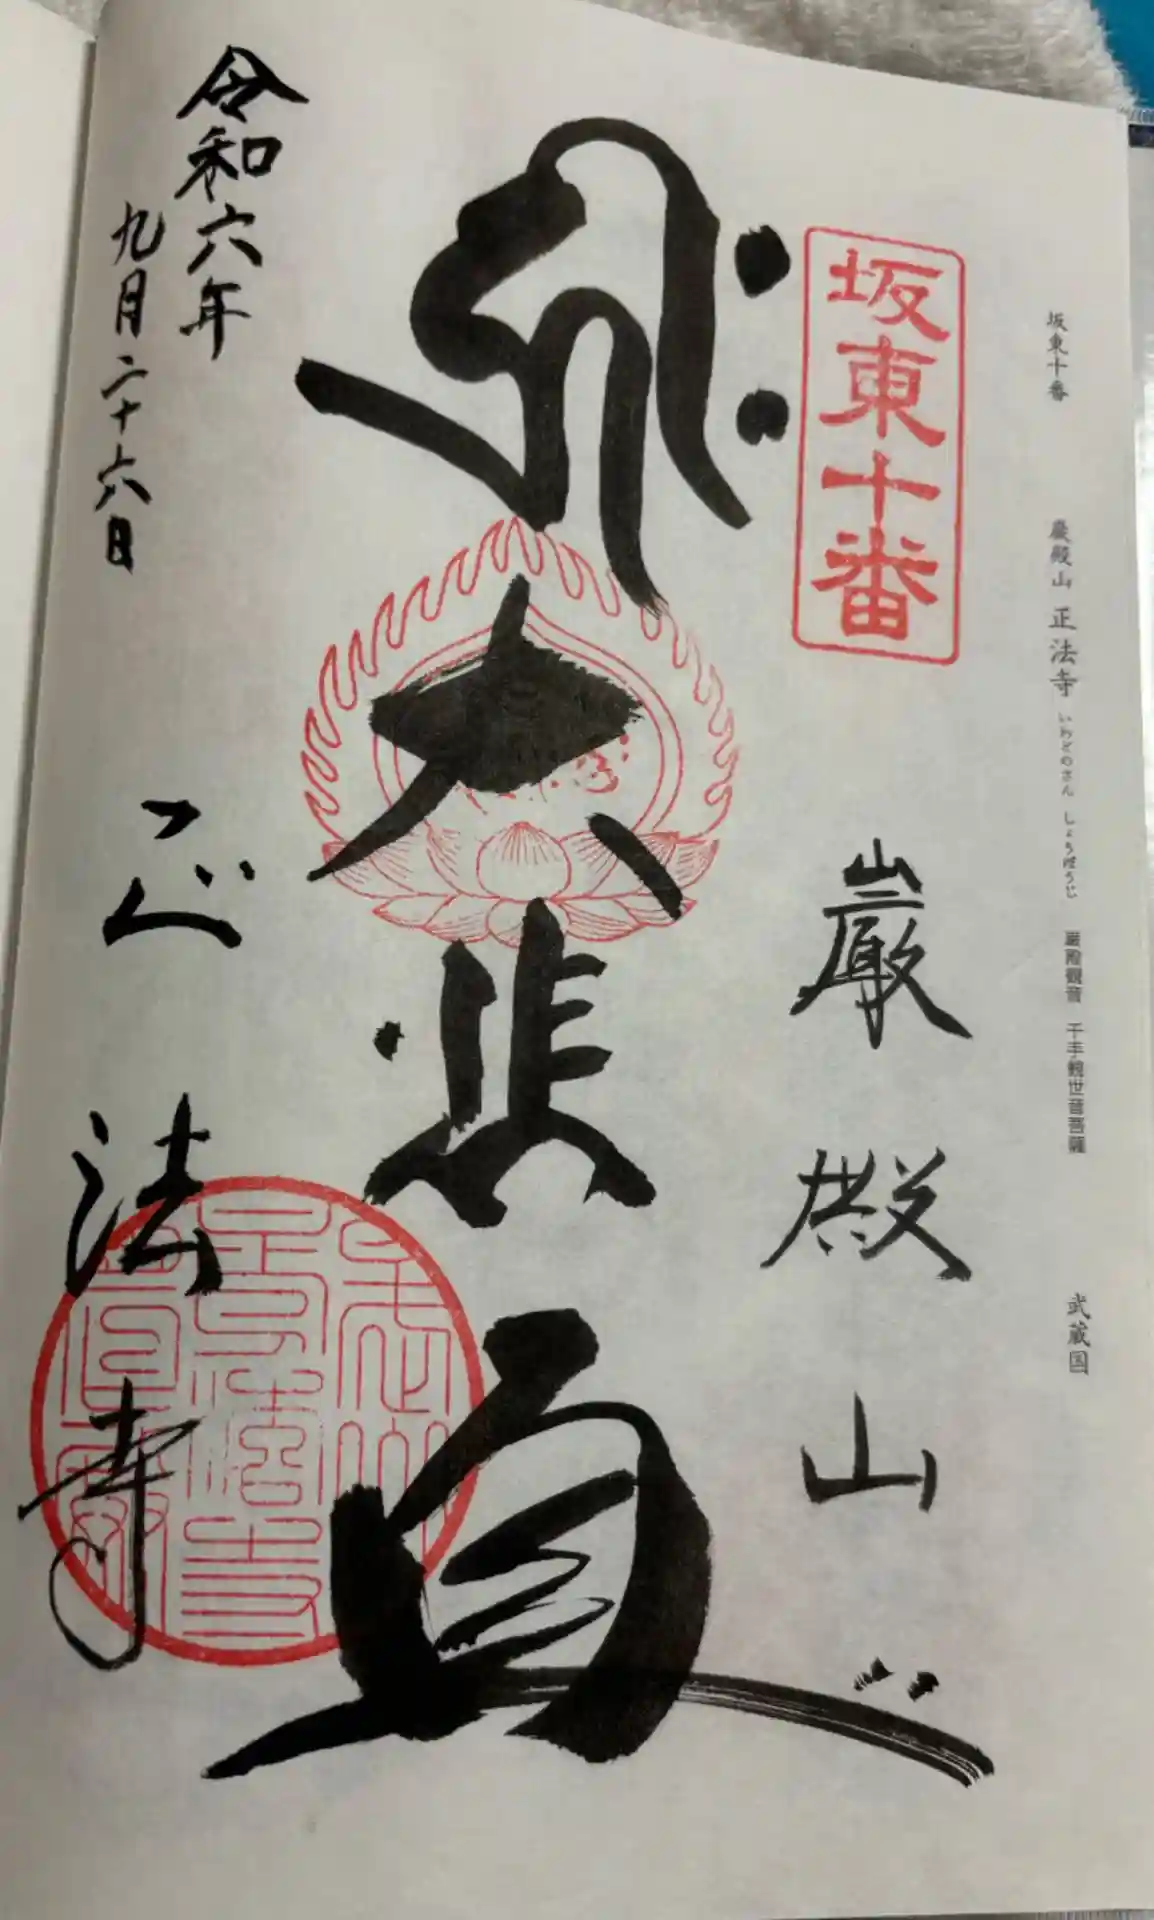 坂東十番
巌殿山 正法寺 いわとのさん しょうぼうじ
巌殿観音 千手観世音菩薩
武蔵国
坂東十番
巌殿山
大悲殿
令和六年
九月二十六日
正法寺